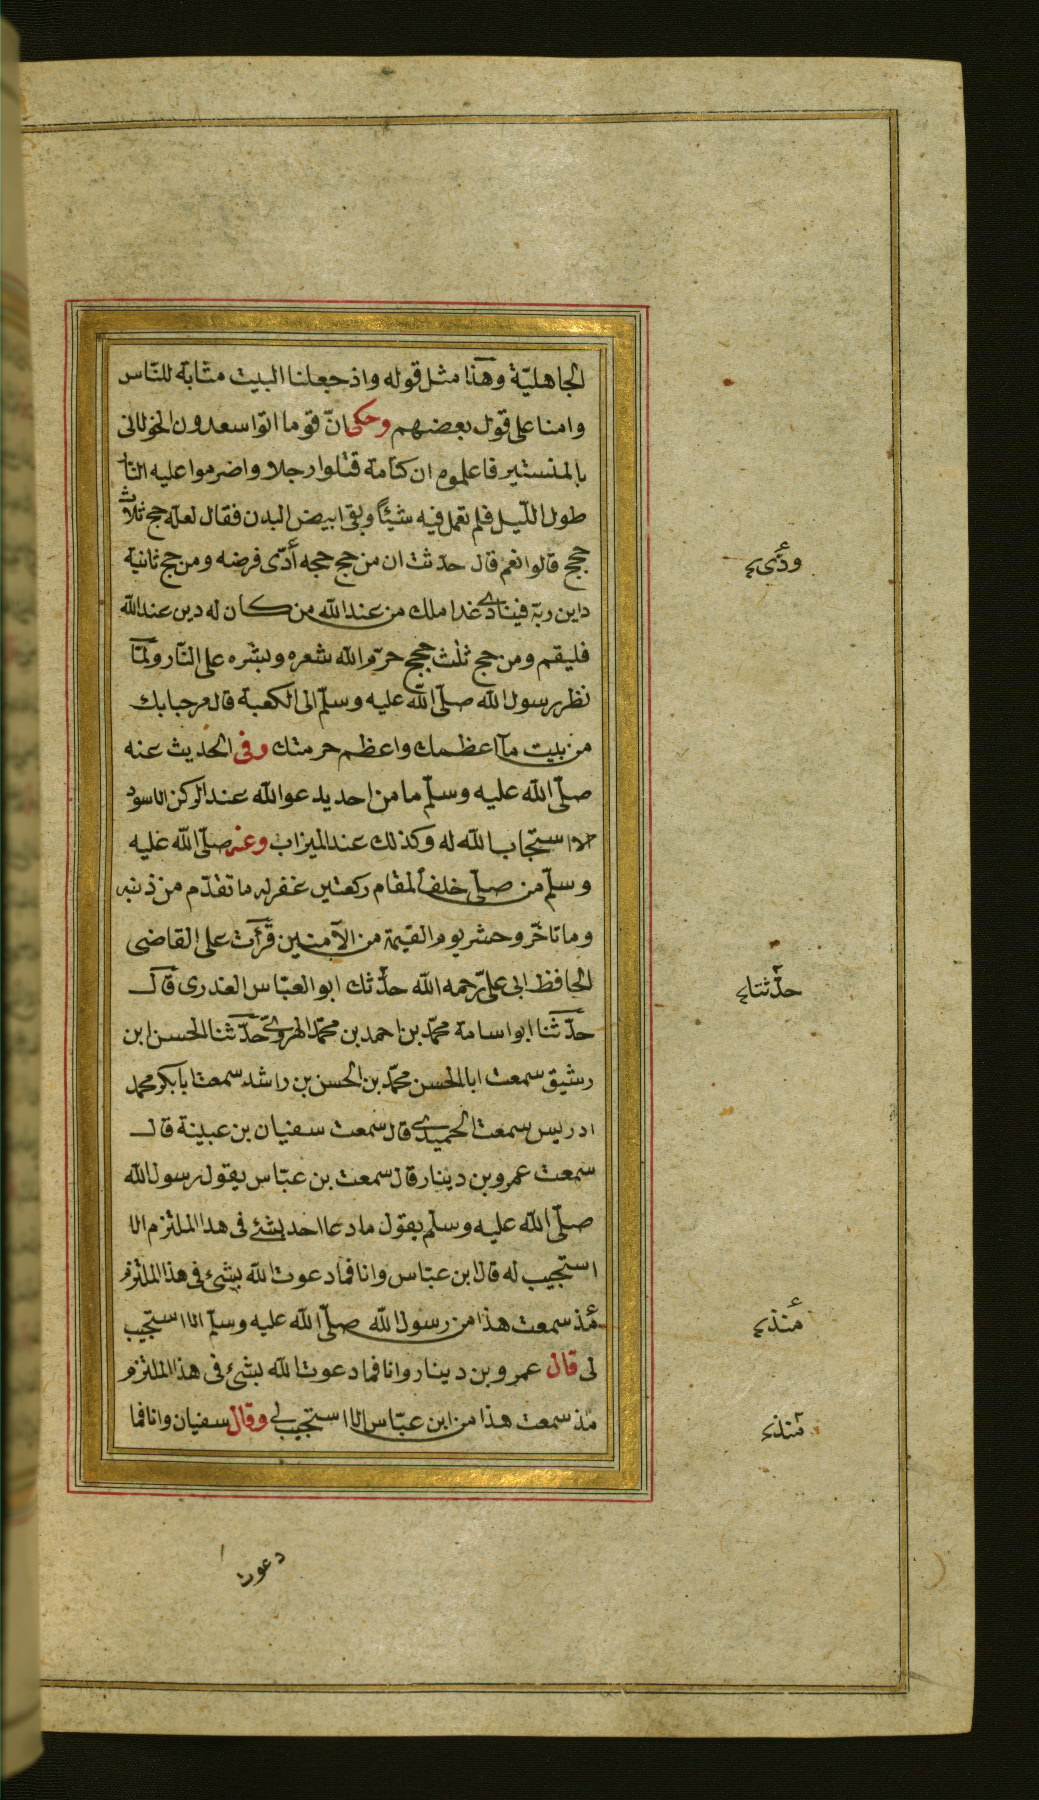 الجاهليّة وهذا مثل قوله واذ جعلنا البيت مثابة للنّاس
وامنا على قول بعضهم وحكى انّ قوما اتوا سعدون الخولانى
بالمنستير فاعلموه ان كتامة قتلوا رجلا واضرموا عليه النّار
طول اللّيل فلم تعمل فيه شيئاً وبقى ابيض البدن فقال لعلّه حج ثلاث
حجج قالوا نعم قال حدثت ان من حج حجه أدّى فرضه ومن حج ثانية
داين ربّه فينادى غدا ملك من عند الله من كان له دين عند الله
فليقم ومن حج ثلث حجج حرّم الله شعره وبشره على النّار ولمّا
نظر رسول الله صلّى الله عليه وسلّم الى الكعبة قال مرحبا بك
من بيت ما اعظمك واعظم حرمتك وفى الحديث عنه
صلّى الله عليه وسلّم ما من احد يدعو الله عند الركن الاسود
الا استجاب الله له وكذلك عند الميزاب وعنه صلّى الله عليه
وسلّم من صلّى خلف المقام ركعتين غفر له ما تقدّم من ذنبه
وما تاخّر وحشر يوم القيمة من الآمنين قرأت على القاضى
الحافظ ابى علىّ رحمه الله حدّثك ابو العبّاس العذرى قال
حدّثنا ابو اسامة محمّد بن احمد بن محمّد الهروى حدّثنا الحسن ابن
رشيق سمعت ابا الحسن محمّد بن الحسن بن راشد سمعت ابا بكر محمد
ادريس سمعت الحميدى قال سمعت سفيان بن عيينة قال
سمعت عمرو بن دينار قال سمعت بن عبّاس يقول رسول الله
صلّى الله عليه وسلّم يقول ما دعا احد بشئ فى هذا الملتزم الا
استجيب له قال ابن عبّاس وانا فما دعوت الله بشئ فى هذا الملتزم
مُذ سمعت هذا من رسول الله صلّى الله عليه وسلّم الا استجيب
لى قال عمرو بن دينار وانا فما دعوت الله بشئ فى هذا الملتزم
مذ سمعت هذا من ابن عبّاس الا استجيب لى وقال سفيان وانا فما
حدّثنا
منذ
منذ
دعوت